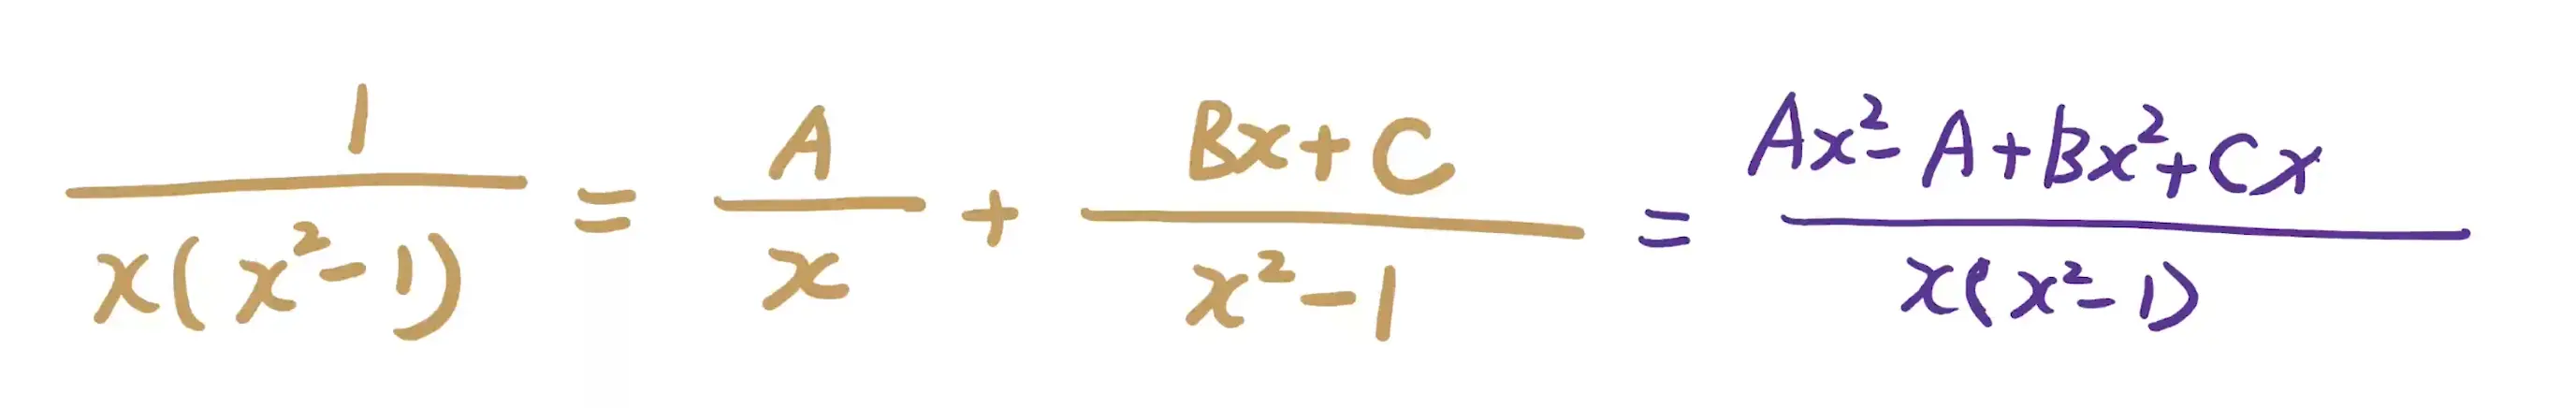 1/(x(x²-1)) = A/x + (Bx+C)/(x²-1) = (Ax²-A+Bx²+Cx)/(x(x²-1))